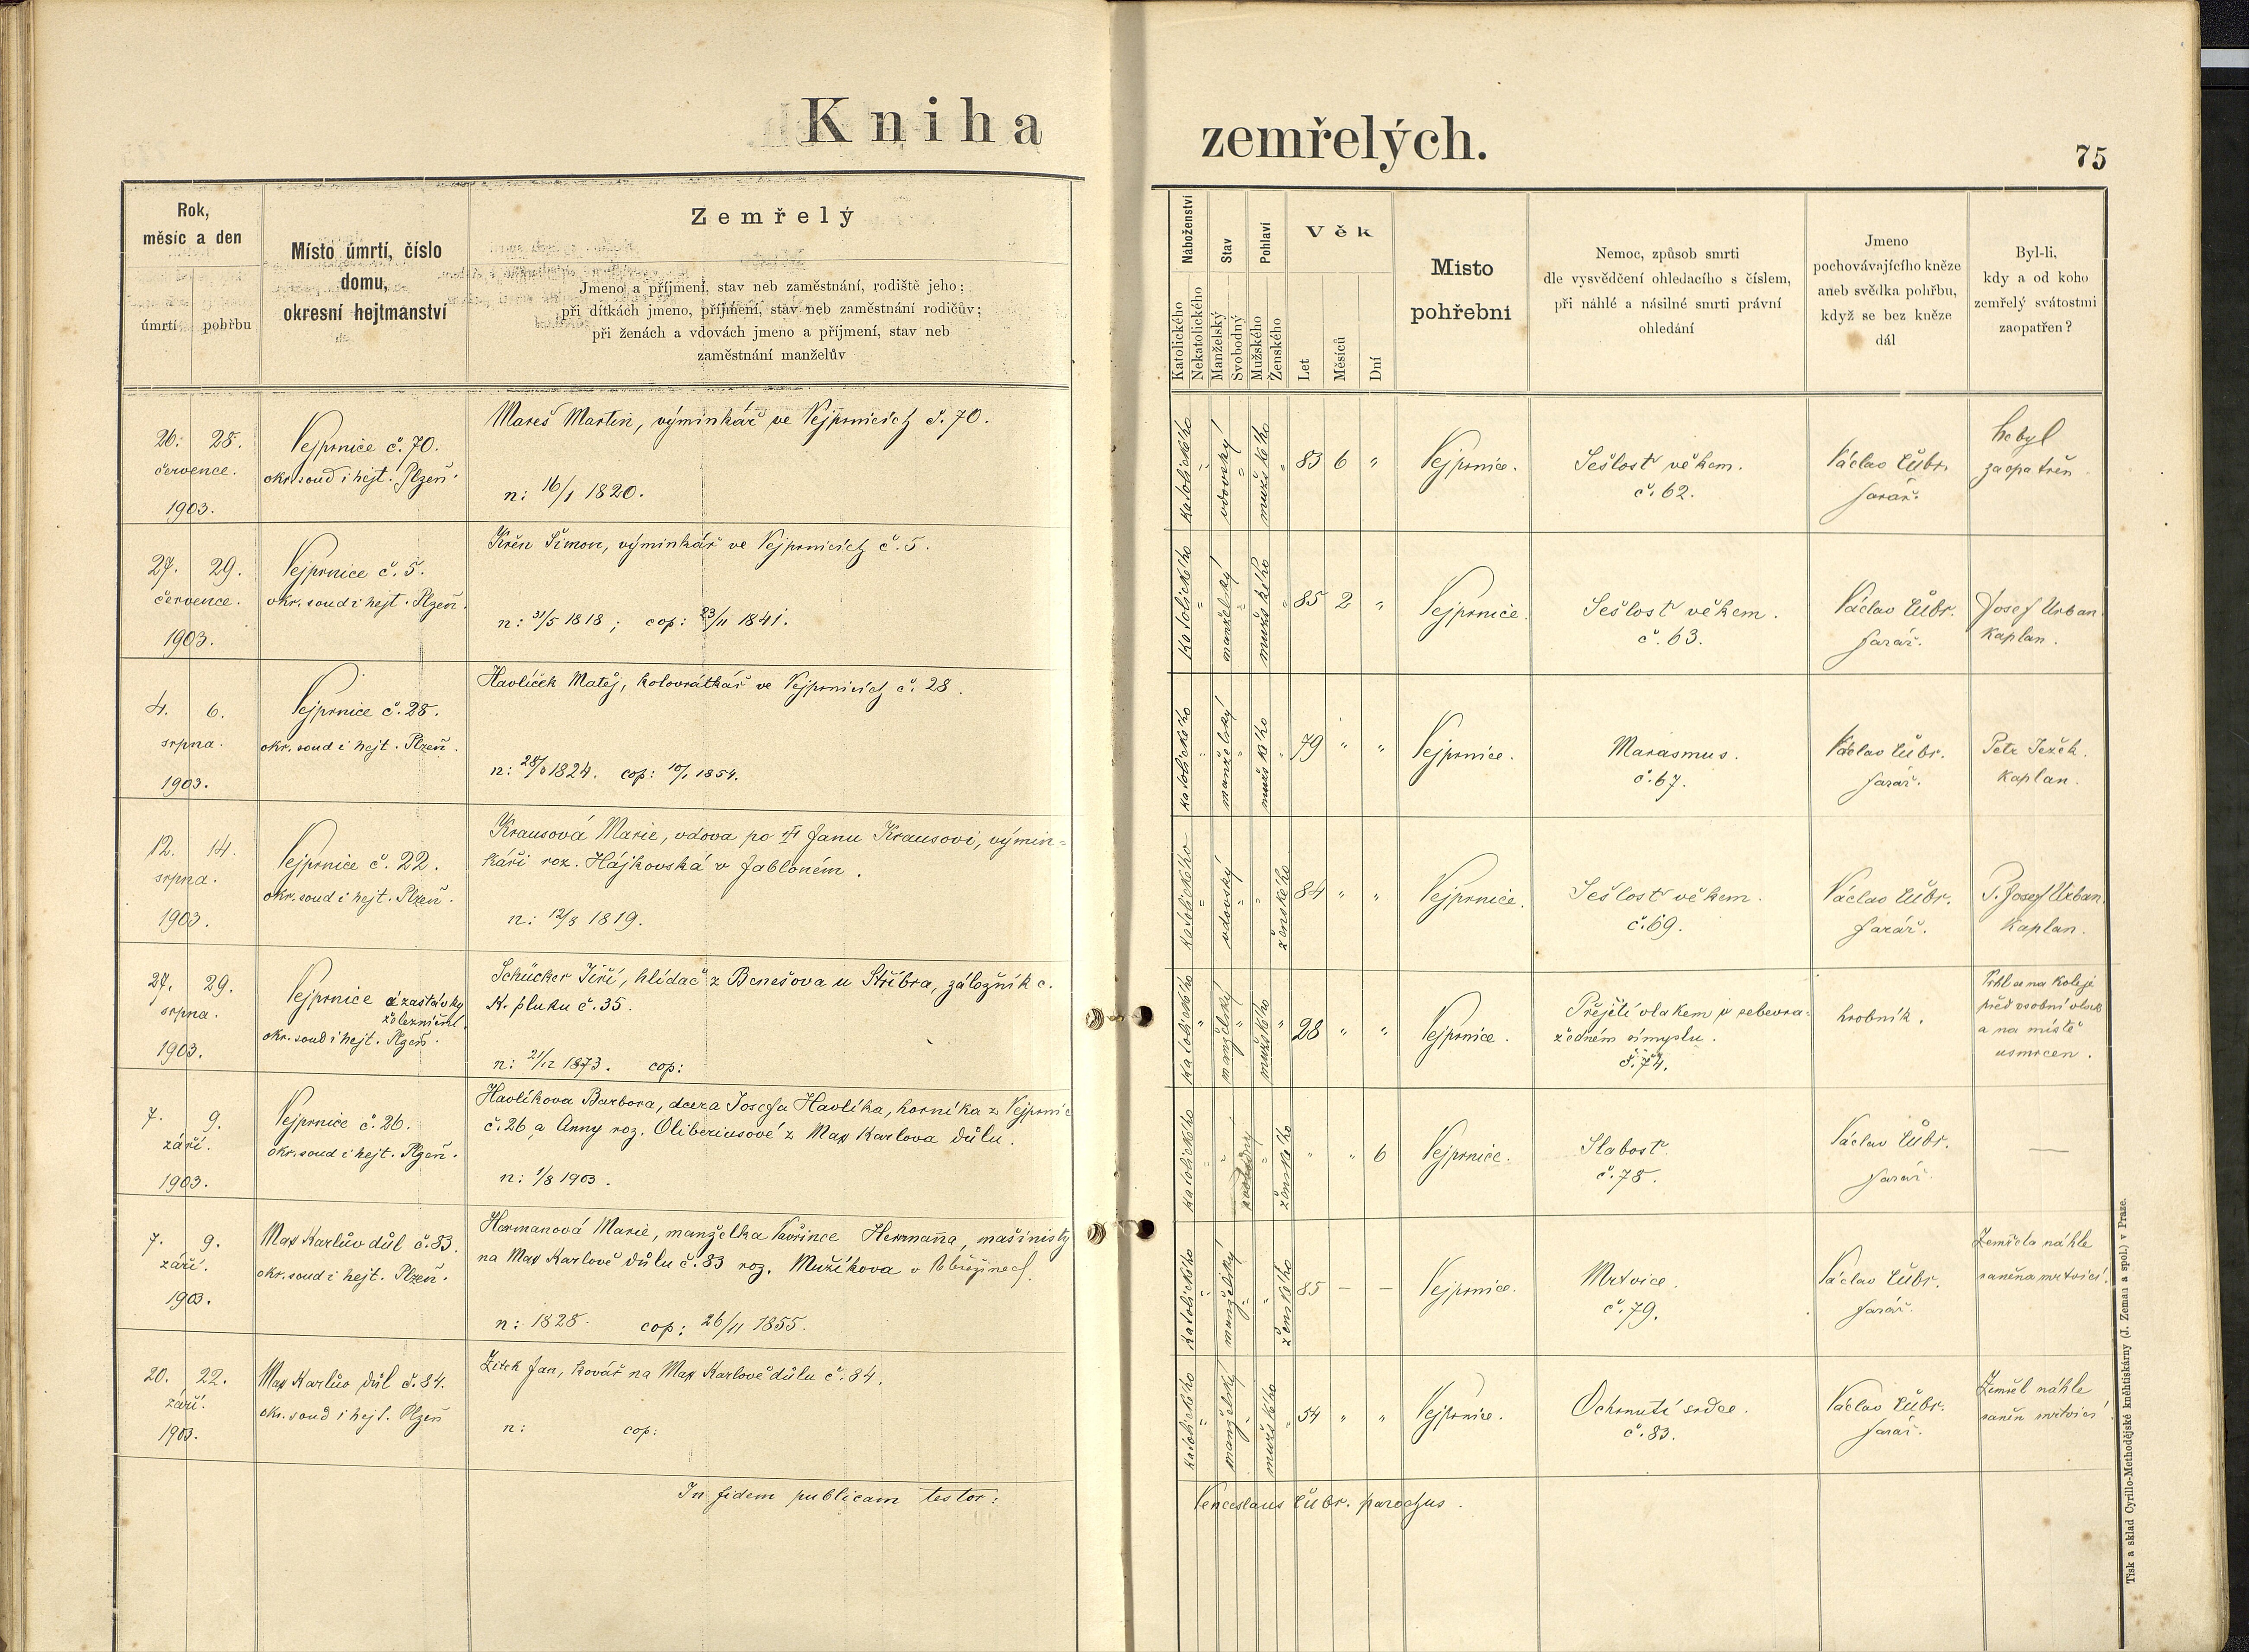 Kniha
zemřelých.
75
Rok,
měsíc a den
úmrtí
pohřbu
Místo úmrtí, číslo
domu,
okresní hejtmanství
Zemřelý
Jmeno a příjmení, stav neb zaměstnání, rodiště jeho;
při dítkách jmeno, příjmení, stav neb zaměstnání rodičův;
při ženách a vdovách jmeno a příjmení, stav neb
zaměstnání manželův
Náboženství
Katolického
Nekatolického
Stav
Manželský
Svobodný
Pohlaví
Mužského
Ženského
Věk
Let
Měsíců
Dní
Místo
pohřební
Nemoc, způsob smrti
dle vysvědčení ohledacího s číslem,
při náhlé a násilné smrti právní
ohledání
Jmeno
pochovávajícího kněze
aneb svědka pohřbu,
když se bez kněze
dál
Byl-li,
kdy a od koho
zemřelý svátostmi
zaopatřen?
26. 28.
července.
1903.
Vejprnice č. 70.
okr. soud i hejt. Plzeň.
Mareš Martin, výminkář ve Vejprnicích č. 70.
n: 16/1 1820.
katolického " vdovský " mužského "
83 6 "
Vejprnice.
Sešlost věkem.
č. 62.
Václav Cůbr.
farář.
Nebyl
zaopatřen
27. 29.
července.
1903.
Vejprnice č. 5.
okr. soud i hejt. Plzeň.
Křen Šimon, výminkář ve Vejprnicích č. 5.
n: 31/5 1818; cop: 23/11 1841.
katolického " manželský " mužského "
85 2 "
Vejprnice.
Sešlost věkem.
č. 63.
Václav Cůbr.
farář.
Josef Urban
kaplan.
4. 6.
srpna.
1903.
Vejprnice č. 28.
okr. soud i hejt. Plzeň.
Havlíček Matěj, kolovrátkář ve Vejprnicích č. 28.
n: 28/8 1824. cop: 10/1 1854.
katolického " manželský " mužského "
79 " "
Vejprnice.
Marasmus.
č. 67.
Václav Cůbr.
farář.
Petr Ježek.
kaplan.
12. 14.
srpna.
1903.
Vejprnice č. 22.
okr. soud i hejt. Plzeň.
Krausová Marie, vdova po Janu Krausovi, výmin=
káři roz. Hájkovská v Jabloném.
n: 12/8 1819.
katolického " vdovský " " ženského
84 " "
Vejprnice.
Sešlost věkem.
č. 69.
Václav Cůbr.
farář.
P. Josef Urban
kaplan.
27. 29.
srpna.
1903.
Vejprnice u zastávky
železniční.
okr. soud i hejt. Plzeň.
Schücker Jiří, hlídač z Benešova u Stříbra, záložník c.
K. pluku č. 35.
n: 21/12 1873. cop:
katolického " manželský " mužského "
28 " "
Vejprnice.
Přejetí vlakem v sebevra=
žedném úmyslu.
č. 74.
hrobník.
Vrhl se na koleje
před osobní vlak
a na místě
usmrcen.
7. 9.
září.
1903.
Vejprnice č. 26.
okr. soud i hejt. Plzeň.
Havlíkova Barbora, dcera Josefa Havlíka, horníka z Vejprnic
č. 26 a Anny roz. Oliberiusové z Max Karlova důlu.
n: 1/8 1903.
katolického " " svobodný " ženského
" " 6
Vejprnice.
Slabost
č. 78.
Václav Cůbr.
farář.
—
7. 9.
září.
1903.
Max Karlův důl č. 83.
okr. soud i hejt. Plzeň.
Hermanová Marie, manželka Vavřince Hermana, mašinisty
na Max Karlově důlu č. 83 roz. Mužíkova v
n: 1828. cop: 26/11 1855.
katolického " manželský " " ženského
85 — —
Vejprnice.
Mrtvice.
č. 79.
Václav Cůbr.
farář.
Zemřela náhle
raněna mrtvicí.
20. 22.
září.
1903.
Max Karlův důl č. 84.
okr. soud i hejt. Plzeň
Zitek Jan, kovář na Max Karlově důlu č. 84.
n: cop:
katolického " manželský " mužského "
54 " "
Vejprnice.
Ochrnutí srdce.
č. 83.
Václav Cůbr.
farář.
Zemřel náhle
raněn mrtvicí
In fidem publicam testor:
Venceslaus Cůbr. parochus.
Tisk a sklad Cyrillo-Methodějské knihtiskárny (J. Zeman a spol.) v Praze.